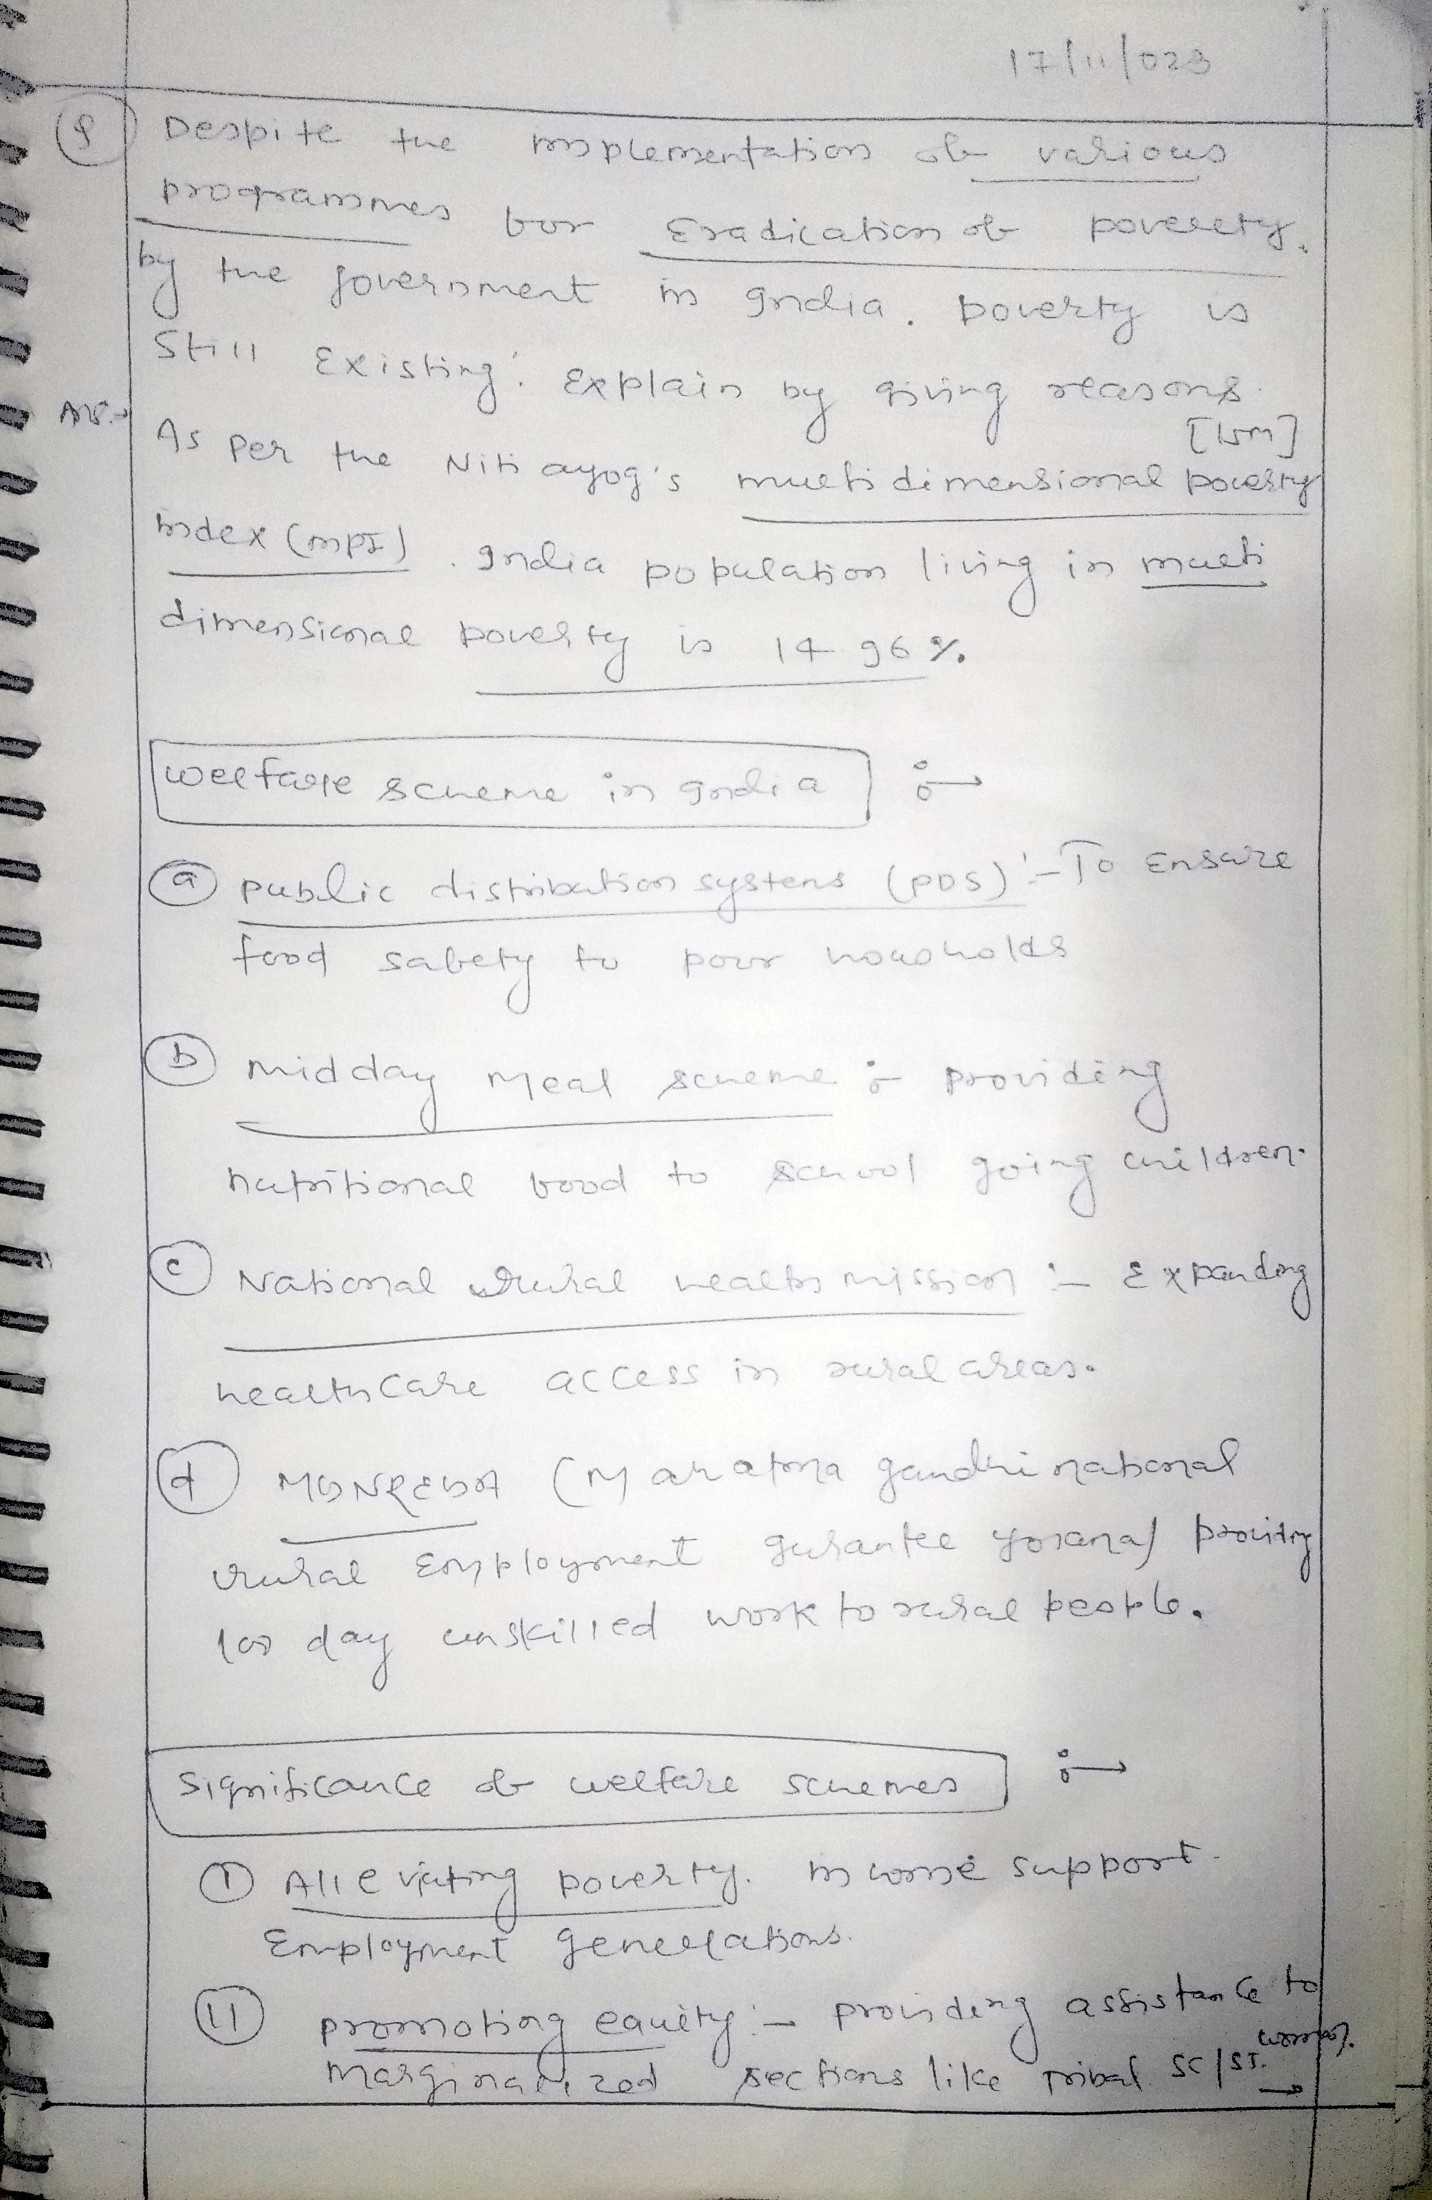 17/11/023
Q Despite the implementation of various
programmes for Eradication of poverety.
by the government in India. poverty is
Still Existing. Explain by giving reasons.
[15m]
Ans.→ As per the Niti ayog's multi dimensional poverty
index (MPI). India population living in multi
dimensional poverty is 14.96%.
welfare scheme in India :→
(a) public distribution systems (PDS) :- To Ensure
food safety to poor housholds
(b) midday meal scheme :- providing
nutritional food to school going children.
(c) National Rural health mission :- Expanding
healthcare access in rural areas.
(d) MGNREGA (Mahatma gandhi national
rural Employment gurantee yojana) providing
100 day unskilled work to rural people.
Significance of welfare schemes :→
(I) Alleviating poverty. income support.
Employment generations.
(II) promoting equity :- providing assistance to
marginalized sections like tribal. SC/ST. woman.
→